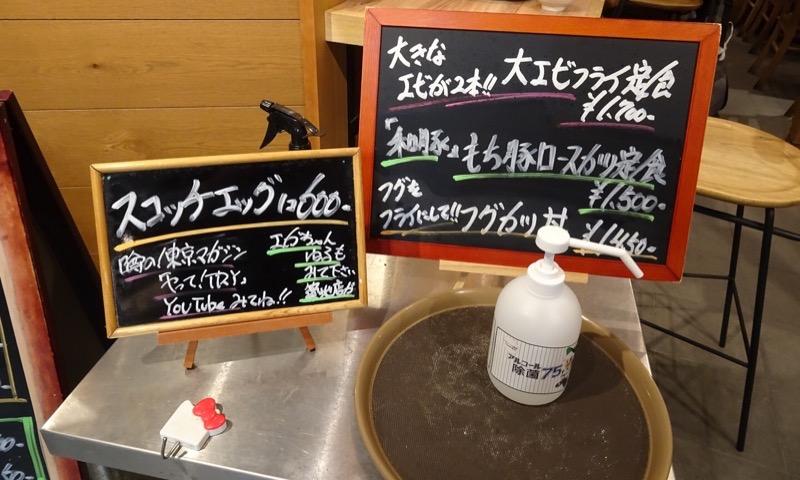 スコッチエッグ 600-
東京マガジン
やって!TRY
YouTube みてね!!
みて下さい
大きな
エビが2本!! 大エビフライ定食
¥1,700-
「和豚」もち豚ロースカツ定食
¥1,500-
フグを
フライにして!! フグカツ
¥1,450-
アルコール
除菌 75